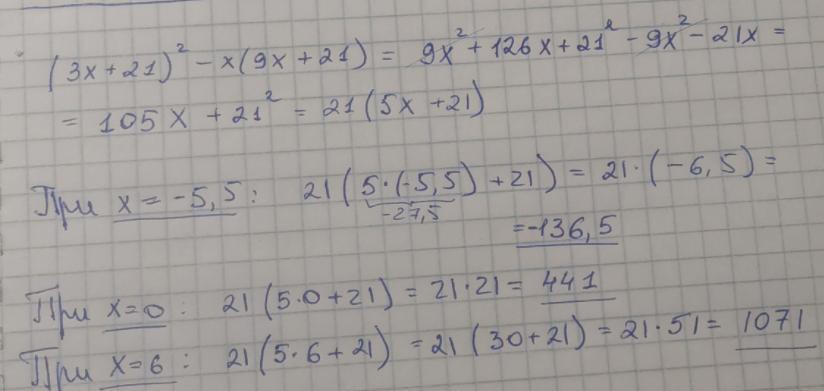 (3x+21)² - x(9x+21) = 9x² + 126x + 21² - 9x² - 21x =
= 105x + 21² = 21(5x+21)
При x = -5,5 : 21(5·(-5,5) + 21) = 21·(-6,5) =
-27,5
= -136,5
При x=0 : 21(5·0+21) = 21·21 = 441
При x=6 : 21(5·6+21) = 21(30+21) = 21·51 = 1071